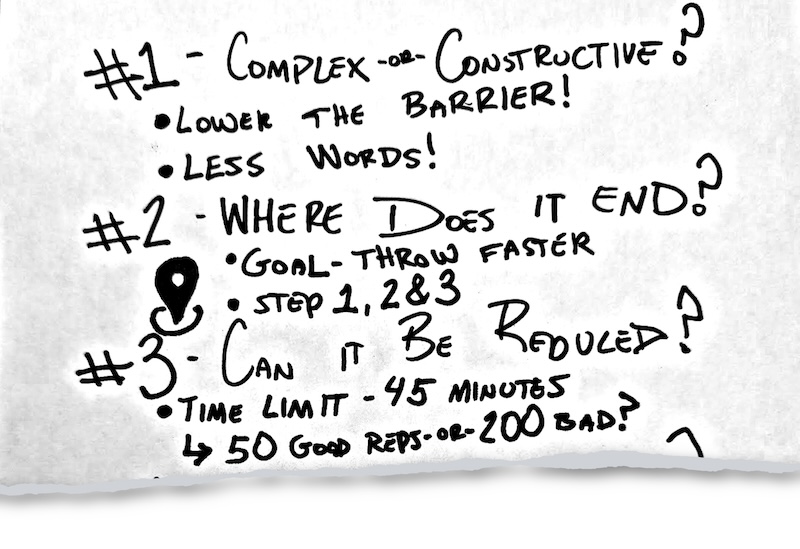 #1 - COMPLEX -OR- CONSTRUCTIVE?
• LOWER THE BARRIER!
• LESS WORDS!
#2 - WHERE DOES IT END?
• GOAL - THROW FASTER
• STEP 1, 2 & 3
#3 - CAN IT BE REDUCED?
• TIME LIMIT - 45 MINUTES
↳ 50 GOOD REPS -OR- 200 BAD?